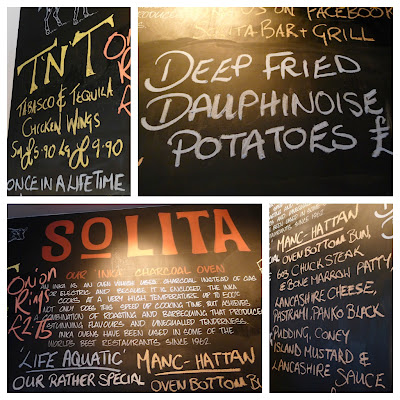 TN'T
TABASCO & TEQUILA
CHICKEN WINGS
5.90 9.90
ONCE IN A LIFETIME
US ON FACEBOOK
SOLITA BAR + GRILL
DEEP FRIED
DAUPHINOISE
POTATOES
SOLITA
ONION
RINGS
OUR 'INKA' CHARCOAL OVEN
AN INKA IS AN OVEN WHICH USES CHARCOAL INSTEAD OF GAS
OR ELECTRIC AND BECAUSE IT IS ENCLOSED, THE INKA
COOKS AT A VERY HIGH TEMPERATURE. UP TO 500°C
NOT ONLY DOES THIS SPEED UP COOKING TIME BUT ACHIEVES
COMBINATION OF ROASTING AND BARBEQUING THAT PRODUCE
STUNNING FLAVOURS AND UNEQUALLED TENDERNESS.
INKA OVENS HAVE BEEN USED IN SOME OF THE
WORLDS BEST RESTAURANTS SINCE 1962.
'LIFE AQUATIC'
OUR RATHER SPECIAL
MANC-HATTAN
OVEN BOTTOM BU
MANC-HATTAN
OVEN BOTTOM BUN
6oz CHUCK STEAK
& BONE MARROW PATTY,
LANCASHIRE CHEESE,
PASTRAMI, PANKO BLACK
PUDDING, CONEY
ISLAND MUSTARD &
LANCASHIRE SAUCE